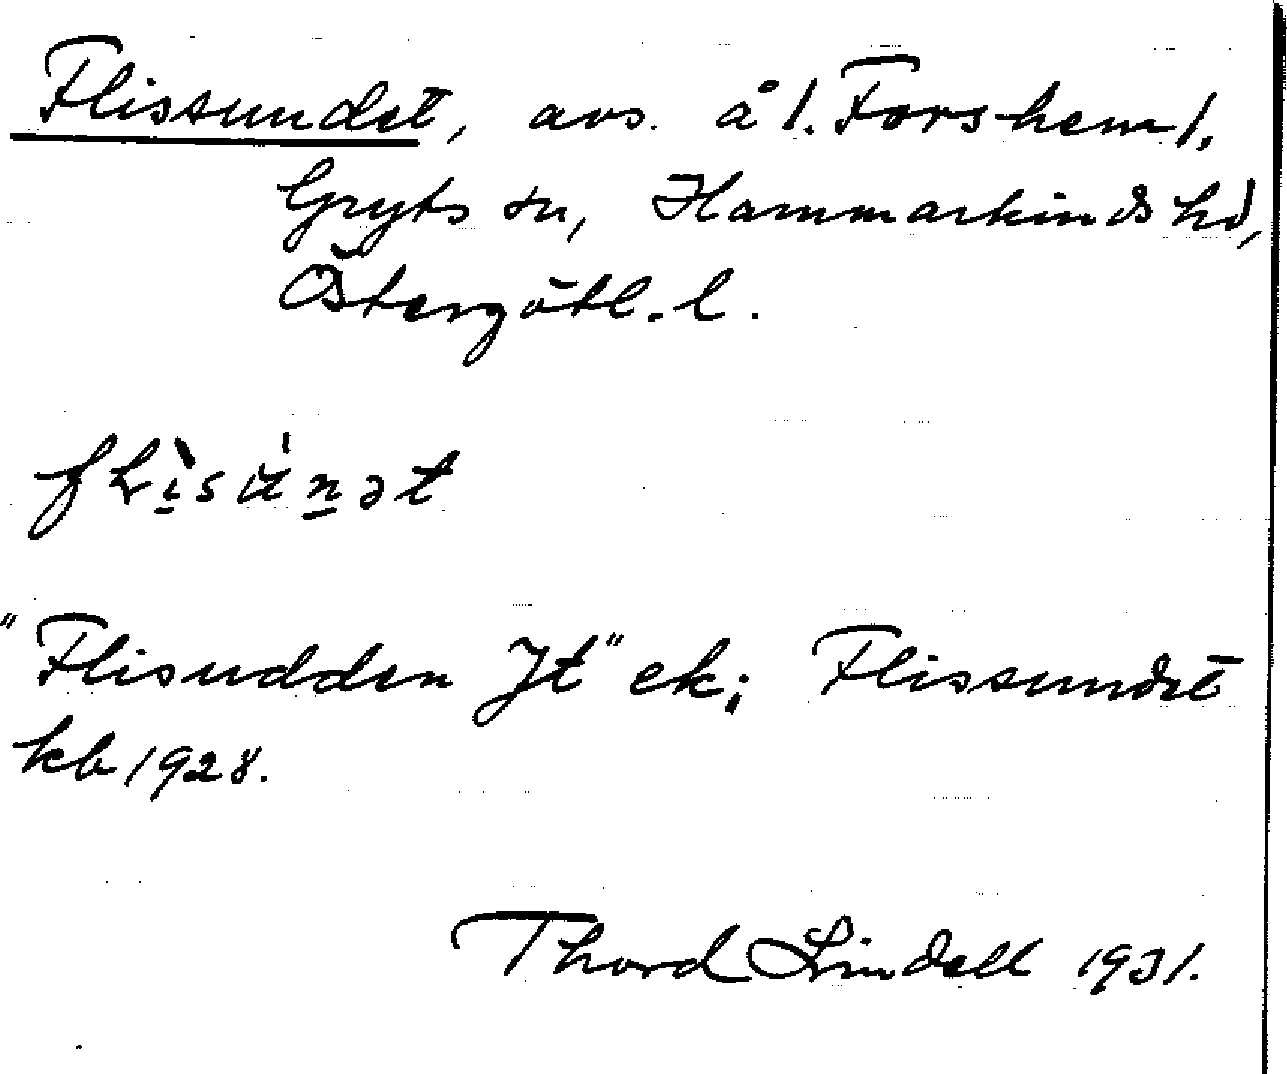 Flissundet, avs. å 1. Forshem 1.
Gryts sn, Hammarkinds hd,
Östergötl. l.
"Flisudden Jt" ek; Flissundet
kb 1928.
Thord Lindell 1931.